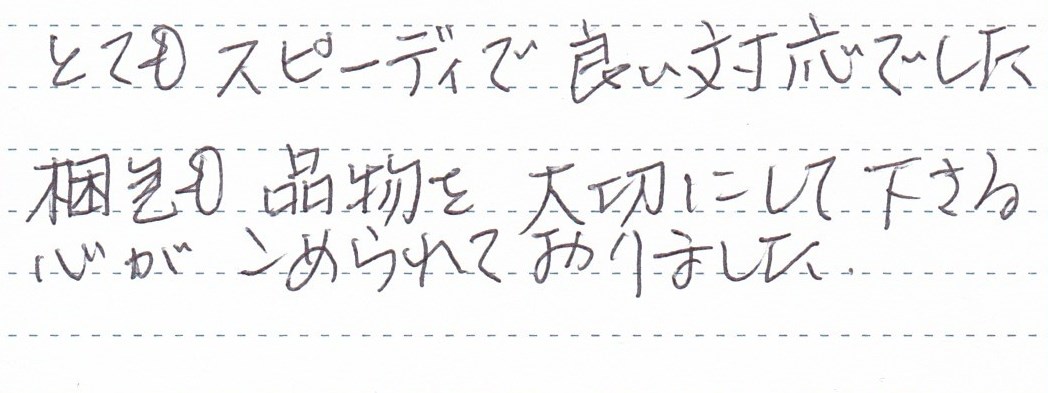 とてもスピーディで良い対応でした
梱包も品物を大切にして下さる
心がこめられておりました.